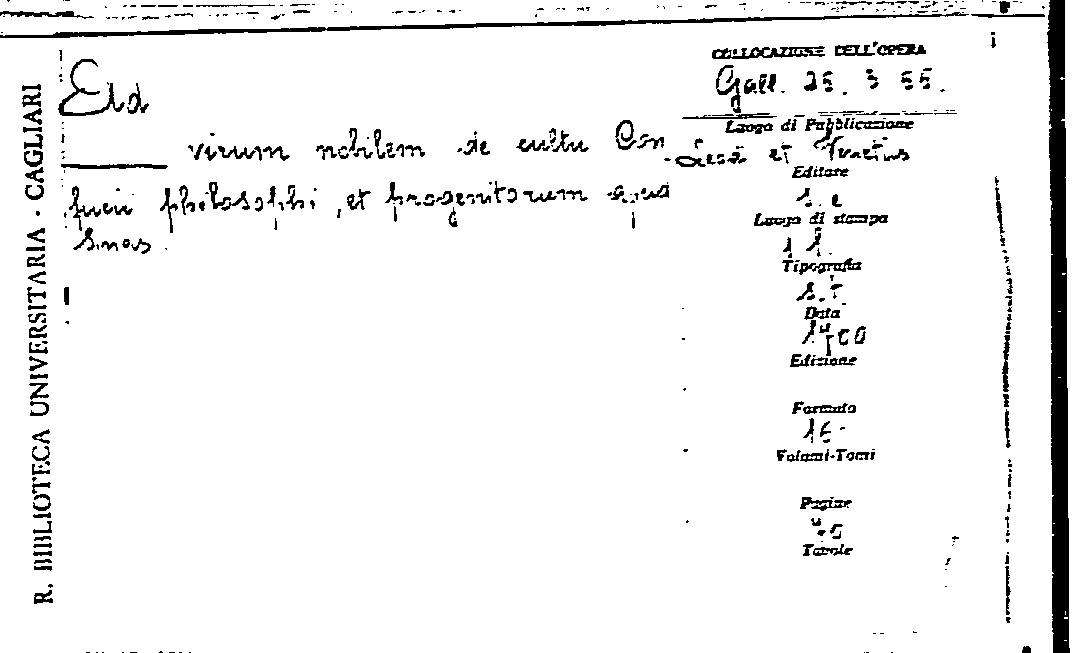 R. BIBLIOTECA UNIVERSITARIA - CAGLIARI
Ad
virum nobilem de cultu Con
fucii philosophi, et progenitorum apud
Sinas.
COLLOCAZIONE DELL'OPERA
Gall. 25. 3 55.
Luogo di Pubblicazione
et
Editore
s. e
Luogo di stampa
Tipografia
s. t.
Data
1700
Edizione
Formato
16.
Volumi-Tomi
Pagine
Tavole